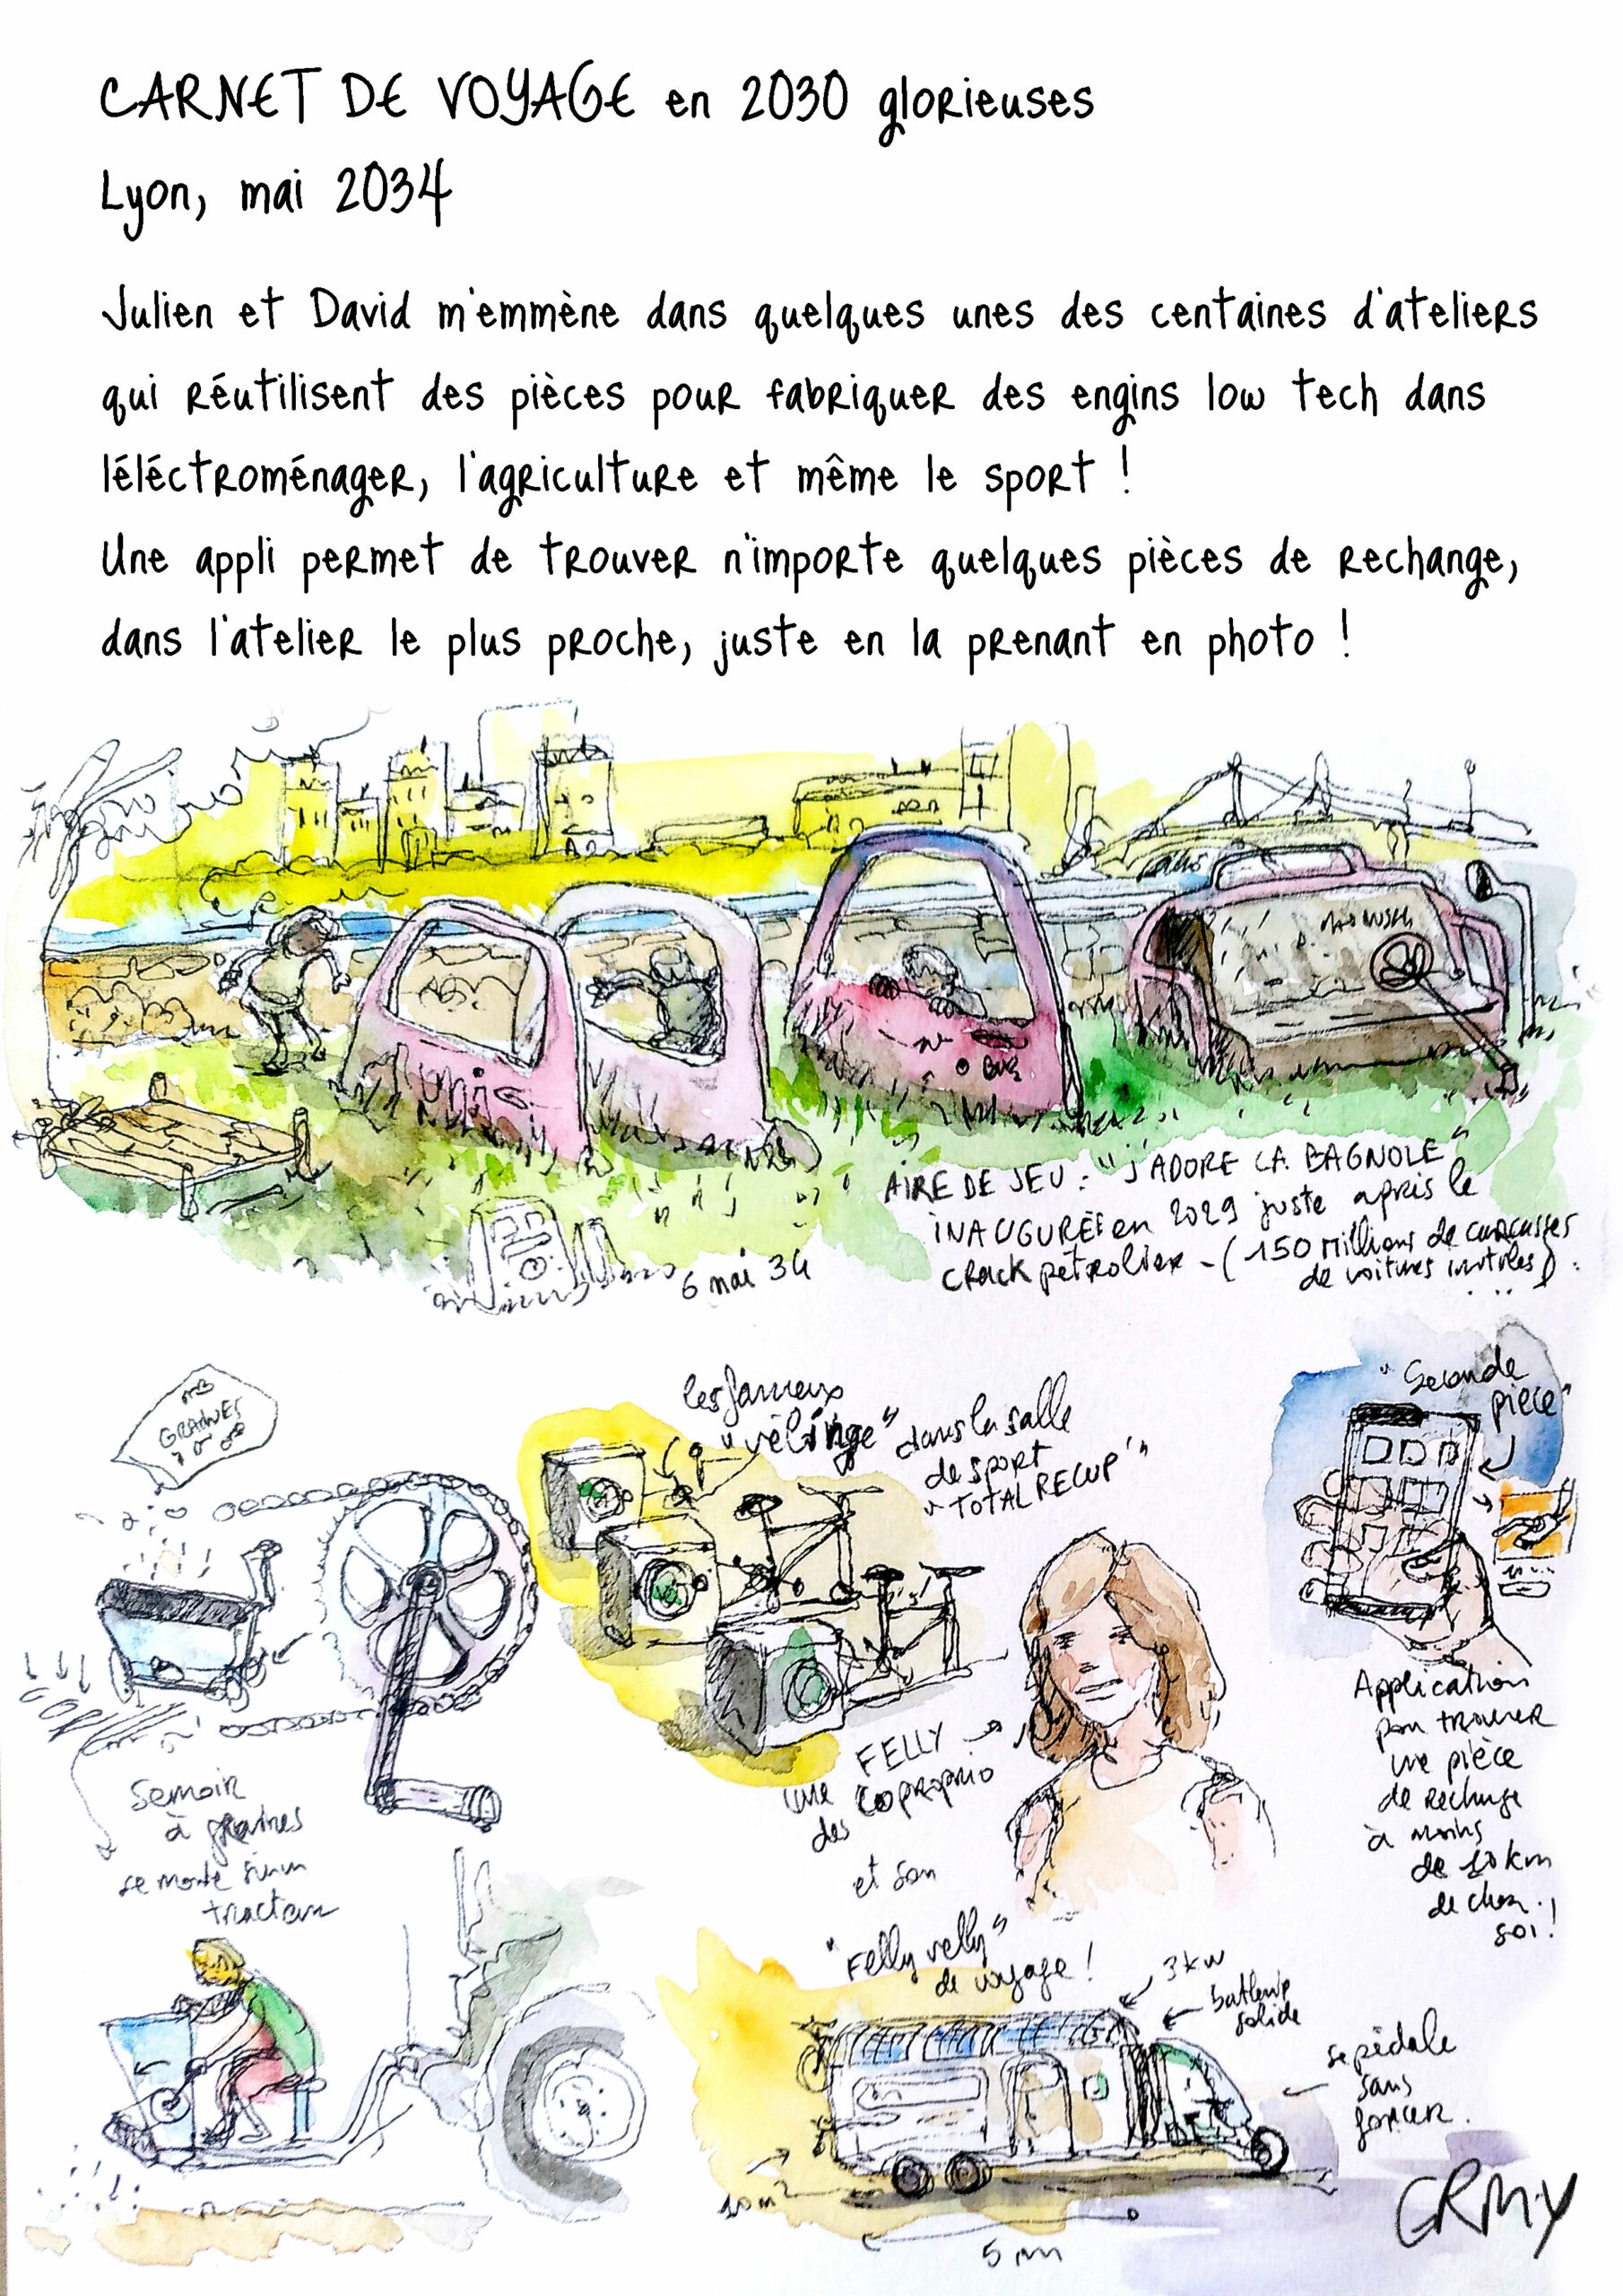 CARNET DE VOYAGE en 2030 glorieuses
Lyon, mai 2034
Julien et David m'emmène dans quelques unes des centaines d'ateliers
qui réutilisent des pièces pour fabriquer des engins low tech dans
léléctroménager, l'agriculture et même le sport !
Une appli permet de trouver n'importe quelques pièces de rechange,
dans l'atelier le plus proche, juste en la prenant en photo !
AIRE DE JEU : "J'ADORE LA BAGNOLE"
INAUGURÉE en 2029 juste après le
crack pétrolier - (150 millions de carcasses
de voitures inutiles)
6 mai 34
GRAINES
les fameux
"vélinge" dans la salle
de sport
"TOTAL RECUP'"
"Seconde
pièce"
Semoir
à graines
se monte sur un
tracteur
FELLY
une coproprio
des
et son
"Felly velly"
de voyage !
Application
pour trouver
une pièce
de rechange
à moins
de 10 km
de chez
soi !
3 kW
batterie
solide
se pédale
sans
forcer.
10 m2
5 m
GRMY